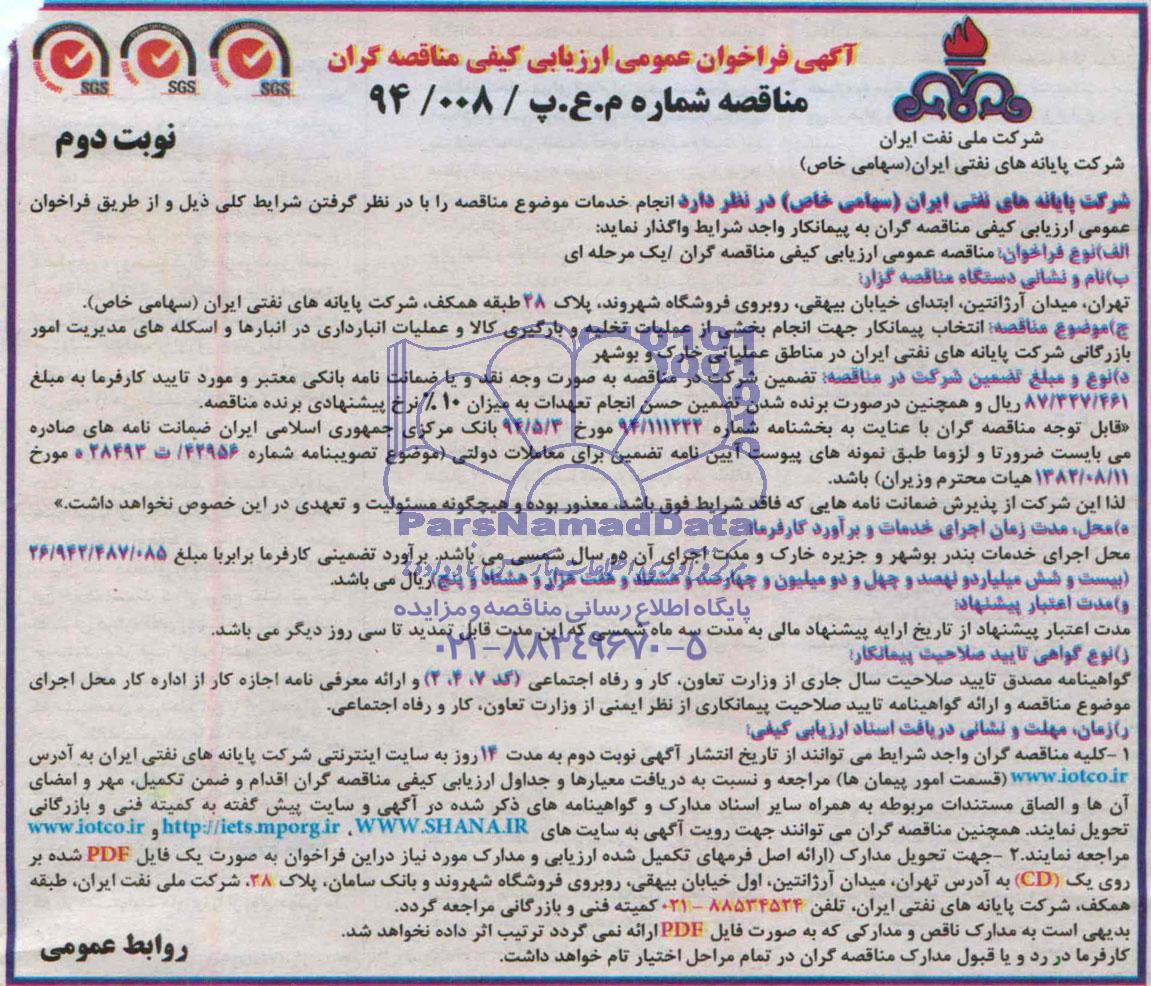 آگهی فراخوان عمومی ارزیابی کیفی مناقصه گران
مناقصه شماره م.ع.پ / ۰۰۸/ ۹۴
نوبت دوم
SGS
SGS
SGS
شرکت ملی نفت ایران
شرکت پایانه های نفتی ایران(سهامی خاص)
شرکت پایانه های نفتی ایران (سهامی خاص) در نظر دارد انجام خدمات موضوع مناقصه را با در نظر گرفتن شرایط کلی ذیل و از طریق فراخوان
عمومی ارزیابی کیفی مناقصه گران به پیمانکار واجد شرایط واگذار نماید:
الف)نوع فراخوان: مناقصه عمومی ارزیابی کیفی مناقصه گران /یک مرحله ای
ب)نام و نشانی دستگاه مناقصه گزار:
تهران، میدان آرژانتین، ابتدای خیابان بیهقی، روبروی فروشگاه شهروند، پلاک ۲۸ طبقه همکف، شرکت پایانه های نفتی ایران (سهامی خاص).
ج)موضوع مناقصه: انتخاب پیمانکار جهت انجام بخشی از عملیات تخلیه و بارگیری کالا و عملیات انبارداری در انبارها و اسکله های مدیریت امور
بازرگانی شرکت پایانه های نفتی ایران در مناطق عملیاتی خارک و بوشهر
د)نوع و مبلغ تضمین شرکت در مناقصه: تضمین شرکت در مناقصه به صورت وجه نقد و یا ضمانت نامه بانکی معتبر و مورد تایید کارفرما به مبلغ
۸۷/۳۲۷/۴۶۱ ریال و همچنین درصورت برنده شدن تضمین حسن انجام تعهدات به میزان ۱۰ ٪ نرخ پیشنهادی برنده مناقصه.
«قابل توجه مناقصه گران با عنایت به بخشنامه شماره ۹۴/۱۱۱۲۲۲ مورخ ۹۴/۵/۳ بانک مرکزی جمهوری اسلامی ایران ضمانت نامه های صادره
می بایست ضرورتا و لزوما طبق نمونه های پیوست آیین نامه تضمین برای معاملات دولتی (موضوع تصویبنامه شماره ۴۲۹۵۶/ ت ۲۸۴۹۳ ه مورخ
۱۳۸۲/۰۸/۱۱ هیات محترم وزیران) باشد.
لذا این شرکت از پذیرش ضمانت نامه هایی که فاقد شرایط فوق باشد، معذور بوده و هیچگونه مسئولیت و تعهدی در این خصوص نخواهد داشت.»
ه)محل، مدت زمان اجرای خدمات و برآورد کارفرما:
محل اجرای خدمات بندر بوشهر و جزیره خارک و مدت اجرای آن دو سال شمسی می باشد. برآورد تضمینی کارفرما برابربا مبلغ ۲۶/۹۴۲/۴۸۷/۰۸۵
(بیست و شش میلیاردو نهصد و چهل و دو میلیون و چهارصد و هشتاد و هفت هزار و هشتاد و پنج)ریال می باشد.
و)مدت اعتبار پیشنهاد:
مدت اعتبار پیشنهاد از تاریخ ارایه پیشنهاد مالی به مدت سه ماه شمسی که این مدت قابل تمدید تا سی روز دیگر می باشد.
ز)نوع گواهی تایید صلاحیت پیمانکار:
گواهینامه مصدق تایید صلاحیت سال جاری از وزارت تعاون، کار و رفاه اجتماعی (کد ۷، ۴، ۲) و ارائه معرفی نامه اجازه کار از اداره کار محل اجرای
موضوع مناقصه و ارائه گواهینامه تایید صلاحیت پیمانکاری از نظر ایمنی از وزارت تعاون، کار و رفاه اجتماعی.
ر)زمان، مهلت و نشانی دریافت اسناد ارزیابی کیفی:
۱ -کلیه مناقصه گران واجد شرایط می توانند از تاریخ انتشار آگهی نوبت دوم به مدت ۱۴ روز به سایت اینترنتی شرکت پایانه های نفتی ایران به آدرس
www.iotco.ir (قسمت امور پیمان ها) مراجعه و نسبت به دریافت معیارها و جداول ارزیابی کیفی مناقصه گران اقدام و ضمن تکمیل، مهر و امضای
آن ها و الصاق مستندات مربوطه به همراه سایر اسناد مدارک و گواهینامه های ذکر شده در آگهی و سایت پیش گفته به کمیته فنی و بازرگانی
تحویل نمایند. همچنین مناقصه گران می توانند جهت رویت آگهی به سایت های WWW.SHANA.IR ، http://iets.mporg.ir و www.iotco.ir
مراجعه نمایند.۲ -جهت تحویل مدارک (ارائه اصل فرمهای تکمیل شده ارزیابی و مدارک مورد نیاز دراین فراخوان به صورت یک فایل PDF شده بر
روی یک (CD) به آدرس تهران، میدان آرژانتین، اول خیابان بیهقی، روبروی فروشگاه شهروند و بانک سامان، پلاک ۲۸، شرکت ملی نفت ایران، طبقه
همکف، شرکت پایانه های نفتی ایران، تلفن ۸۸۵۳۴۵۲۴ - ۰۲۱ کمیته فنی و بازرگانی مراجعه گردد.
بدیهی است به مدارک ناقص و مدارکی که به صورت فایل PDF ارائه نمی گردد ترتیب اثر داده نخواهد شد.
کارفرما در رد و یا قبول مدارک مناقصه گران در تمام مراحل اختیار تام خواهد داشت.
روابط عمومی
ParsNamadData
پایگاه اطلاع رسانی مناقصه و مزایده
۰۲۱-۸۸۳۴۹۶۷۰-۵